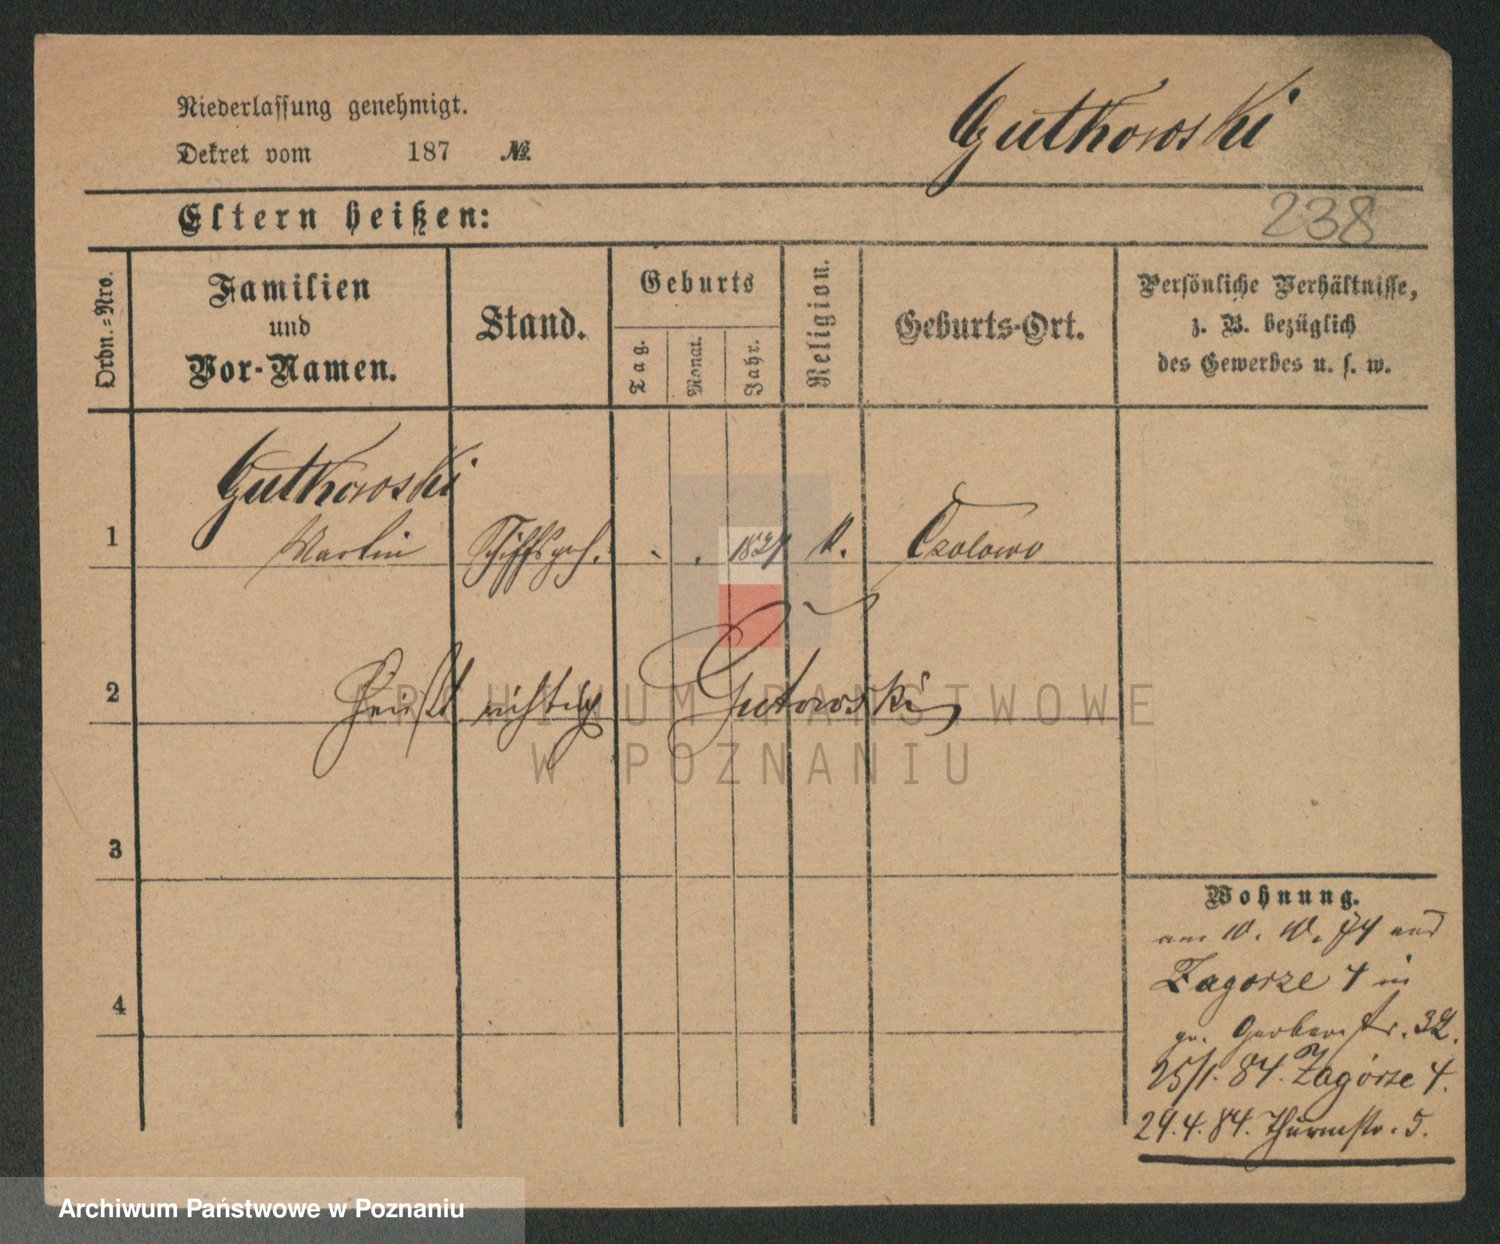 Niederlassung genehmigt.
Gutkowski
Dekret vom 187 №
Eltern heißen:
238
Ordn.-Nro.
Familien und Vor-Namen.
Stand.
Geburts
Tag.
Monat.
Jahr.
Religion.
Geburts-Ort.
Persönliche Verhältnisse,
z. B. bezüglich
des Gewerbes u. s. w.
Gutkowski
1 Martin Schiffsgeh. 1827 K. Czolowo
2 Heißt richtig Gutowski
3
4
Wohnung.
am 10. 10. 74 aus
Zagorze 4 in
gr. Gerberstr. 32.
25/1. 84. Zagórze 4.
29.4.84. Thurmstr. 5.
ARCHIWUM PAŃSTWOWE
W POZNANIU
Archiwum Państwowe w Poznaniu